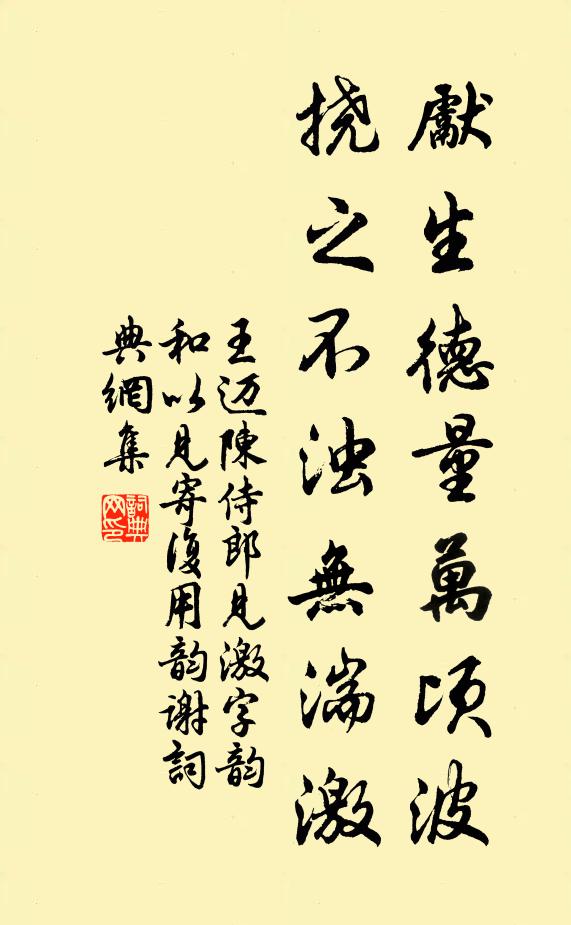 獻生德量萬頃波
撓之不浊無湍激
王迈陳侍郎見激字韵
和以見寄復用韵谢詞
典網集
詞典
网印